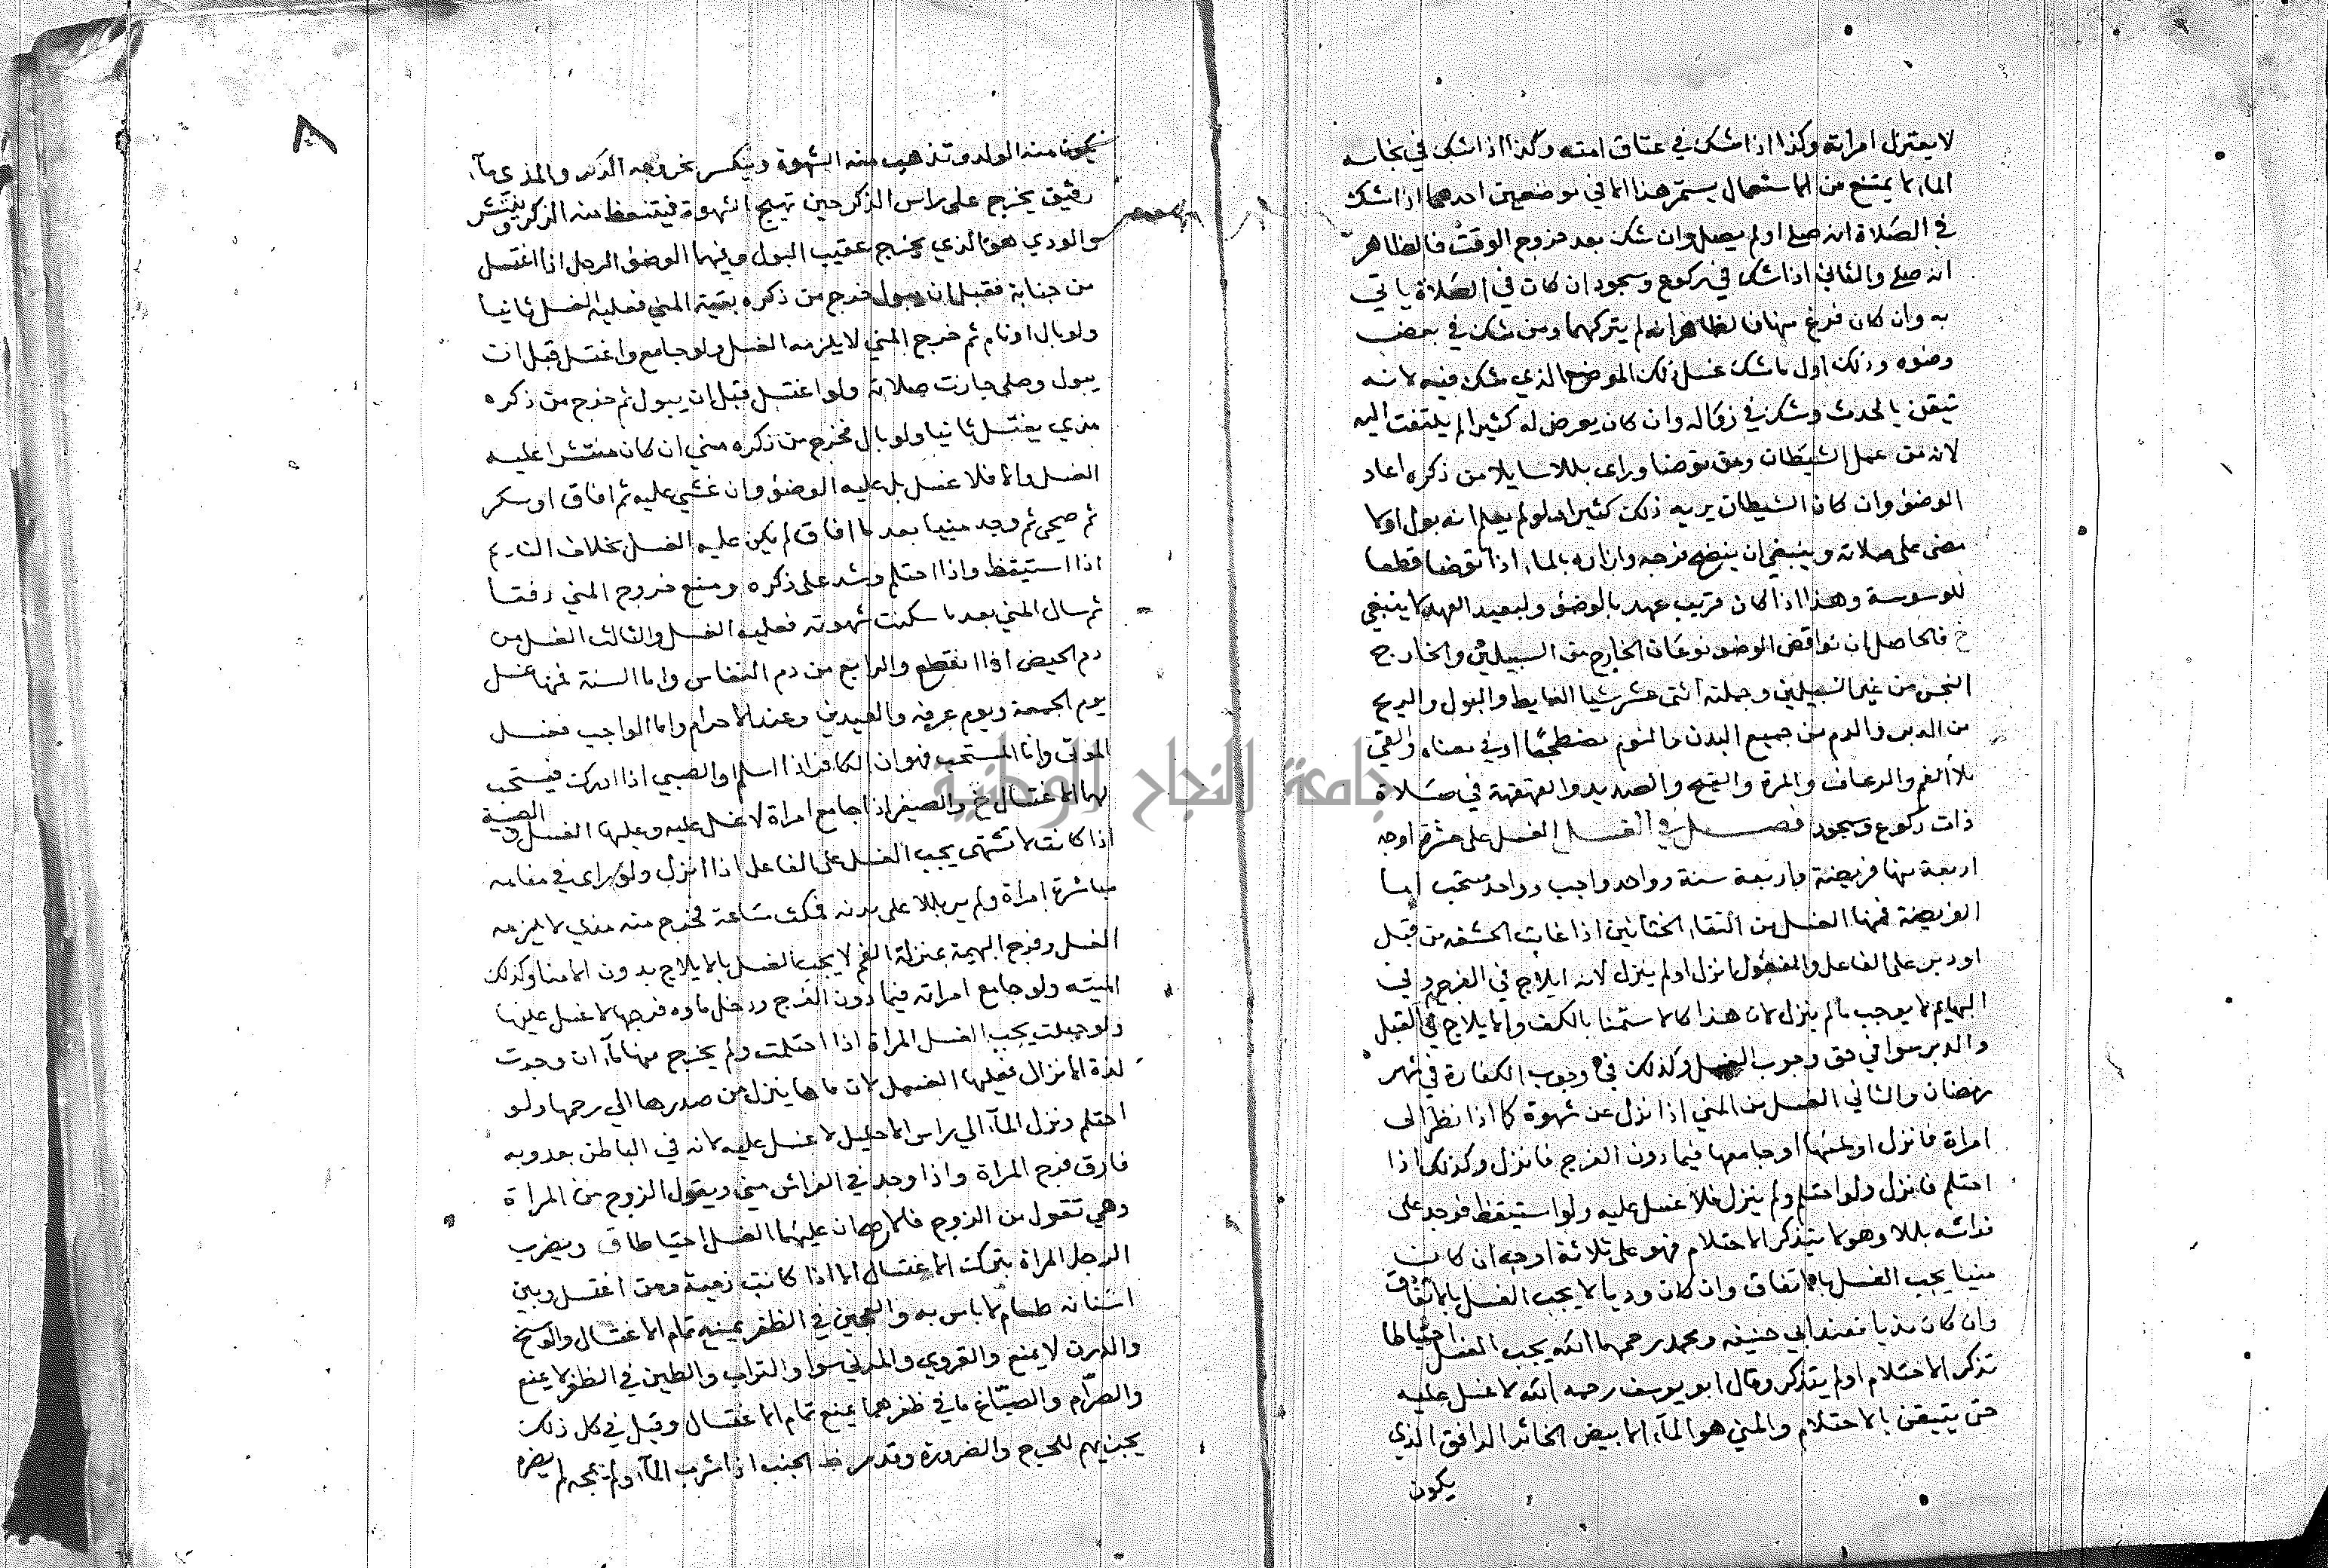 لا يعتزل امراته وكذا اذا شك في عتاق امته وكذا اذا شك في نجاسه
الماء لا يمتنع من الاستعمال يستمر هذا الا في موضعين احدهما اذا شك
في الصلاة انه صلى اولم يصل وان شك بعد خروج الوقت فالظاهر
انه صلى والثاني اذا شك في ركوع وسجود ان كان في الصلاة ياتي
به وان كان فرغ منها فالظاهر انه لم يتركهما ومن شك في بعض
وضوه وذلك اول ما شك غسل ذلك الموضع الذي شك فيه لانه
تيقن بالحدث وشك في زواله وان كان يعرض له كثيرا لم يلتفت اليه
لانه من عمل الشيطان ومن توضا وراى بللا سايلا من ذكره اعاد
الوضو وان كان الشيطان يريه ذلك كثيرا ولم يعلم انه بول اولا
مضى على صلاته وينبغي ان ينضح فرجه وازاره بالماء اذا توضا قطعا
للوسوسة وهذا اذا كان قريب عهد بالوضو ولبعيد العهد لا ينبغي
خ فالحاصل ان نواقض الوضو نوعان الخارج من السبيلين والخارج
النجس من غير السبيلين وجملته اثنى عشر شيا الغايط والبول والريح
من الدبر والدم من جميع البدن والنوم مضطجعا او في معناه والقي
ملأ الفم والرعاف والمرة والقيح والصديد والقهقهة في صلاة
ذات ركوع وسجود فصل في الغسل الغسل على عشرة اوجه
اربعة منها فريضة واربعة سنة وواحد واجب وواحد مستحب اما
الفريضة فمنها الغسل من التقاء الختانين اذا غابت الحشفه من قبل
او دبر على الفاعل والمفعول انزل اولم ينزل لانه ايلاج في الفرج وفي
البهايم لا يوجب مالم ينزل لان هذا كالاستمنا بالكف والايلاج في القبل
والدبر سوا في حق وجوب الغسل وكذلك في وجوب الكفارة في شهر
رمضان والثاني الغسل من المني اذا نزل عن شهوة كما اذا نظر الى
امراة فانزل او لمسها او جامعها فيما دون الفرج فانزل وكذلك اذا
احتلم فانزل ولو احتلم ولم ينزل فلا غسل عليه ولو استيقظ فوجد على
فراشه بللا وهو لا يتذكر الاحتلام فهو على ثلاثة اوجه ان كان
منيا يجب الغسل بالاتفاق وان كان وديا لا يجب الغسل بالاتفاق
وان كان مذيا فعند ابي حنيفه ومحمد رحمهما الله يجب الغسل احتياطا
تذكر الاحتلام اولم يتذكر وقال ابو يوسف رحمه الله لا غسل عليه
حتى يتيقن بالاحتلام والمني هو الماء الابيض الخاثر الدافق الذي
يكون
٨
يكون منه الولد وتذهب منه الشهوة وينكسر بخروجه الذكر والمذي ماء
رقيق يخرج على راس الذكر حين تهيج الشهوة فيتنعظ منه الذكر وينتشر
والودي هو الذي يخرج عقيب البول وفيهما الوضو الرجل اذا اغتسل
من جنابة فقبل ان يبول خرج من ذكره بقية المني فعليه الغسل ثانيا
ولو بال او نام ثم خرج المني لا يلزمه الغسل ولو جامع واغتسل قبل ان
يبول وصلى جازت صلاته ولو اغتسل قبل ان يبول ثم خرج من ذكره
مذي يغتسل ثانيا ولو بال فخرج من ذكره مني ان كان منتشرا عليه
الغسل والا فلا غسل بل عليه الوضو وان غشي عليه ثم افاق او سكر
ثم صحى ثم وجد منيا بعد ما افاق لم يكن عليه الغسل بخلاف النايم
اذا استيقظ واذا احتلم وشد على ذكره ومنع خروج المني دفقا
ثم سال المني بعد ما سكنت شهوته فعليه الغسل والثالث الغسل من
دم الحيض اذا انقطع والرابع من دم النفاس واما السنة فمنها غسل
يوم الجمعة ويوم عرفه والعيدين وعند الاحرام واما الواجب فغسل
الموتى واما المستحب فهو ان الكافر اذا اسلم والصبي اذا ادرك فيستحب
لهما الاغتسال خ والصغير اذا جامع امراة لا غسل عليه وعليها الغسل والصبية
اذا كانت لا تشتهى يجب الغسل على الفاعل اذا انزل ولو راى في منامه
مباشرة امراة ولم ير بللا على بدنه فمكث ساعة فخرج منه مذي لا يلزمه
الغسل وفرج البهيمة بمنزلة الفم لا يجب الغسل بالايلاج بدون الامنا وكذلك
الميته ولو جامع امراته فيما دون الفرج ودخل ماوه فرجها لا غسل عليها
ولو حبلت يجب الغسل المراة اذا احتلمت ولم يخرج منها ماء ان وجدت
لذة الانزال فعليها الغسل لان ماءها ينزل من صدرها الى رحمها ولو
احتلم ونزل الماء الى راس الاحليل لا غسل عليه لانه في الباطن بعد وبه
فارق فرج المراة واذا وجد في الفراش مني ويقول الزوج من المراة
وهي تقول من الزوج فالاصح ان عليهما الغسل احتياطا ق ويضرب
الرجل المراة بترك الاغتسال الا اذا كانت ذمية ومن اغتسل وبين
اسنانه طعام لا باس به والعجين في الظفر يمنع تمام الاغتسال والوسخ
والدرن لا يمنع والقروي والمدني سوا والتراب والطين في الظفر لا يمنع
والصرام والصباغ ما في ظفرهما يمنع تمام الاغتسال وقيل في كل ذلك
يجزيهم للحرج والضرورة وقدر الجنب اذا شرب الماء ولم يمجه لم يضره
جامعة النجاح الوطنية